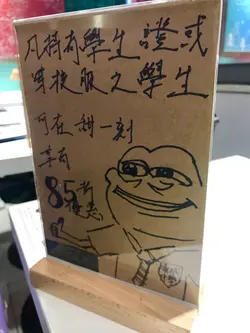 凡持有學生證或
穿校服之學生
可在甜一刻
享有
85折
優惠